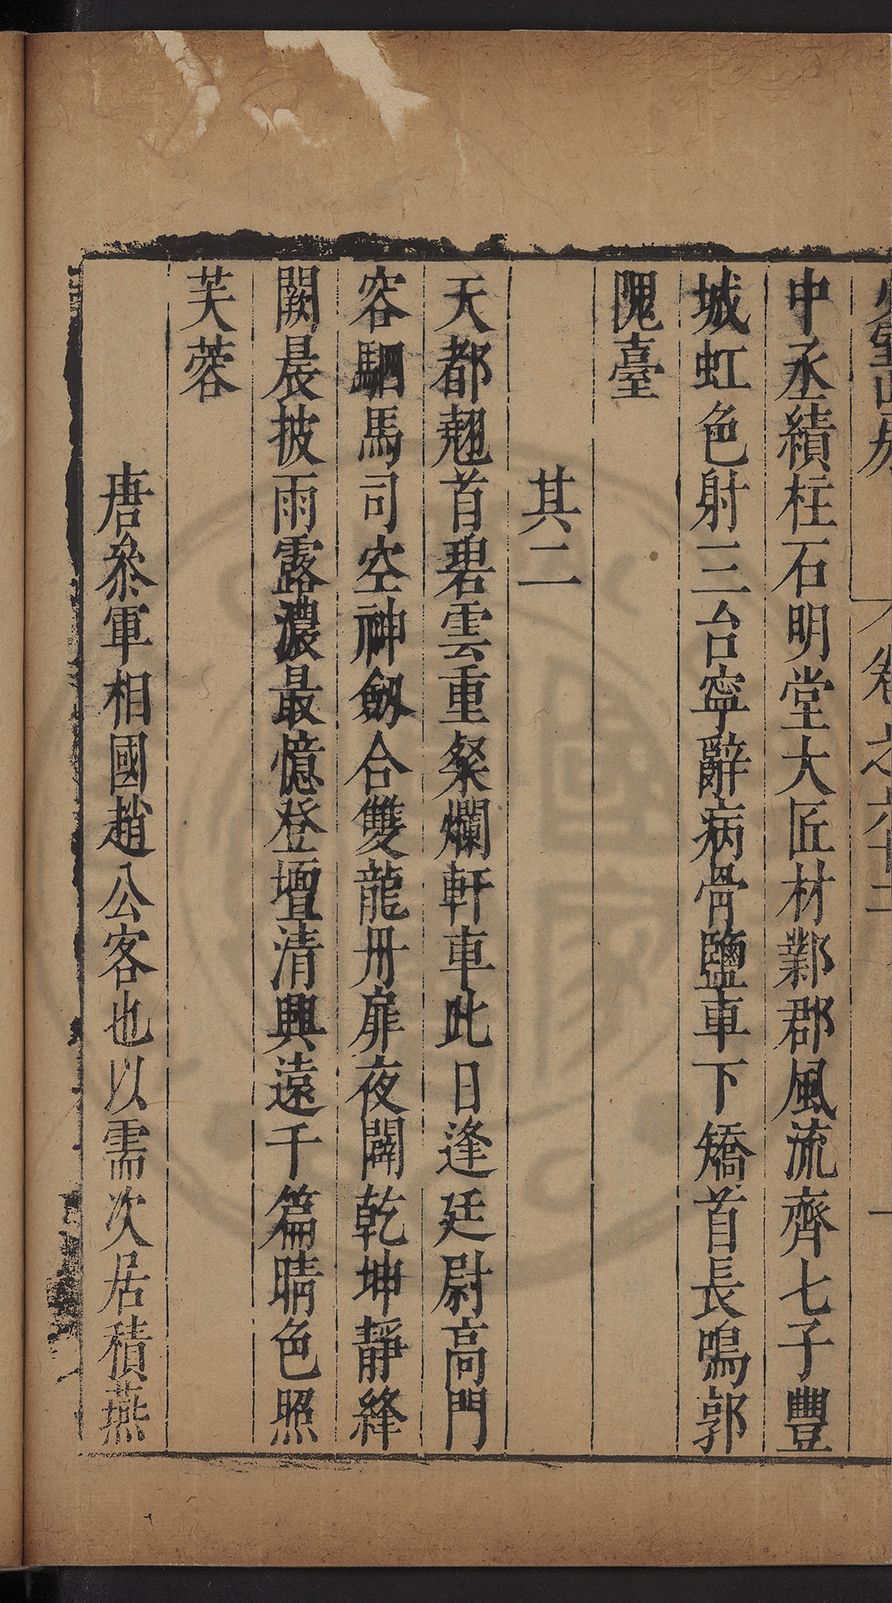 卷之六十二
中丞績柱石明堂大匠材鄴郡風流齊七子豐
城虹色射三台寧辭病骨鹽車下矯首長鳴郭
隗臺
其二
天都翹首碧雲重粲爛軒車此日逢廷尉高門
容駟馬司空神劔合雙龍丹扉夜闢乾坤靜絳
闕晨披雨露濃最憶登壇清興遠千篇晴色照
芙蓉
唐叅軍相國趙公客也以需次居積燕